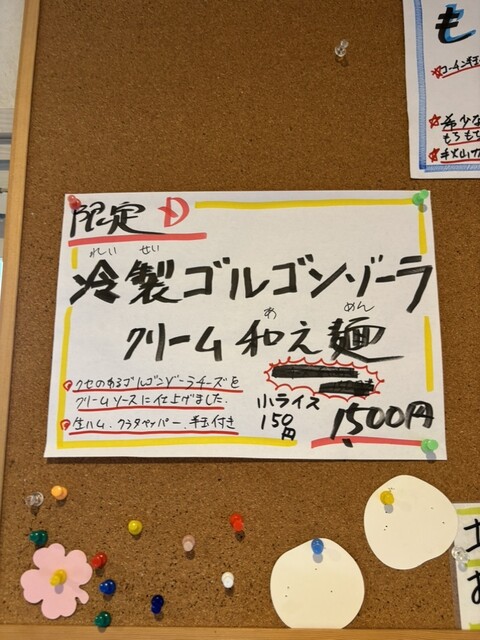 も
コーチン
希少な
もちもち
限定 D
れい せい
冷製ゴルゴンゾーラ
あ めん
クリーム和え麺
クセのあるゴルゴンゾーラチーズを
クリームソースに仕上げました.
生ハム.クラタペッパー.半玉付き
小ライス
150
円
1500円